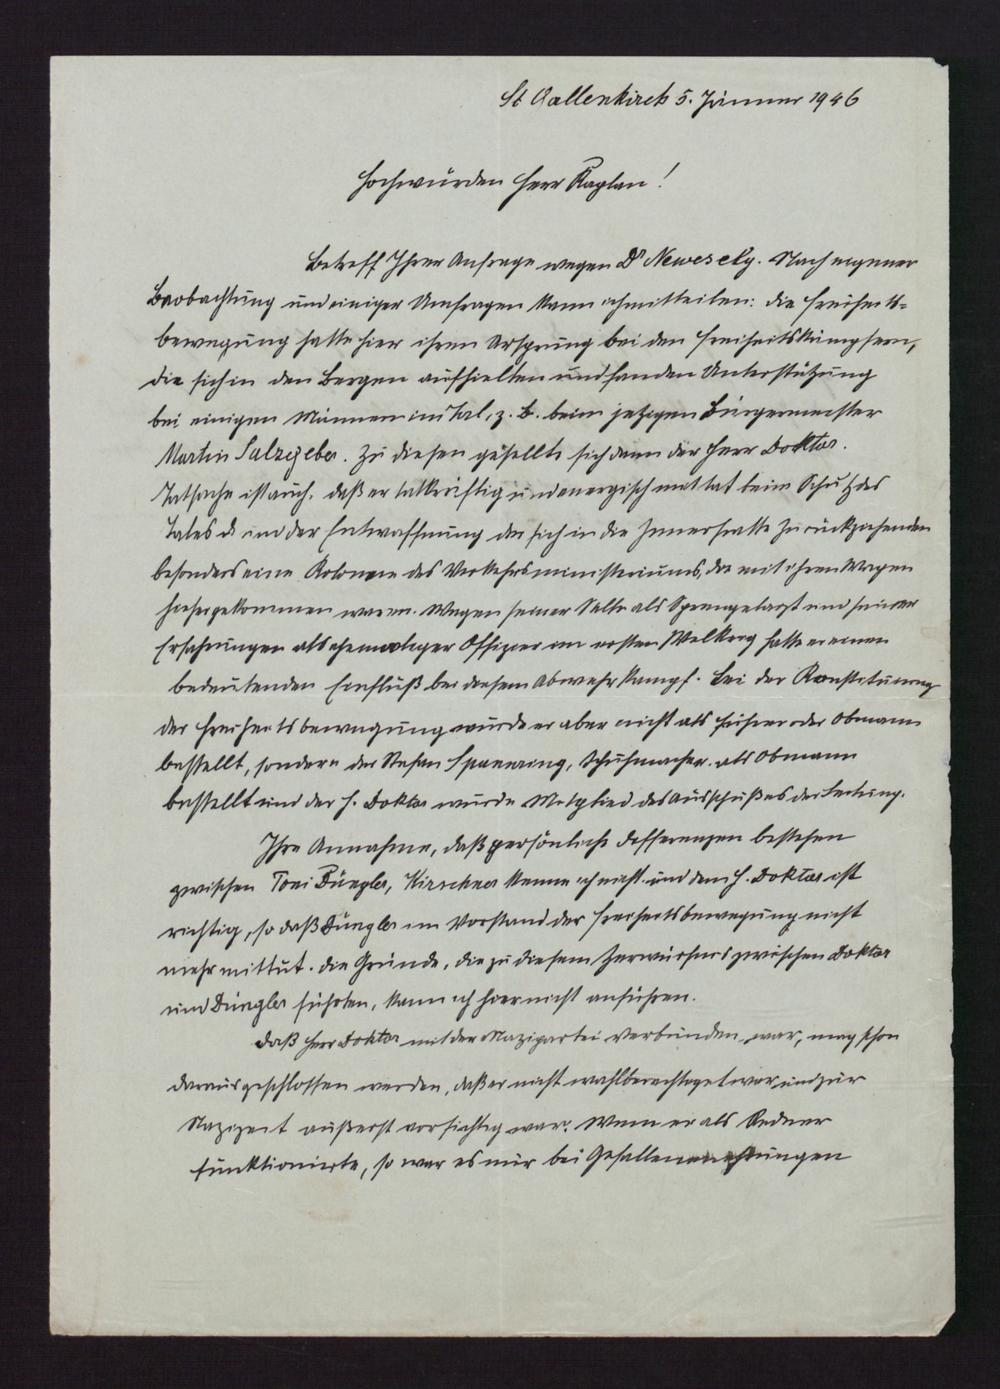 St Gallenkirch 5. Jänner 1946
Hochwürden Herr Kaplan!
Betreff Ihrer Anfrage wegen Dr Newesely. Nach eigener
Beobachtung und einiger Umfragen kann ich mitteilen: die Freiheits-
bewegung hatte hier ihren Ursprung bei den Freiheitskämpfern,
die sich in den Bergen aufhielten und fanden Unterstützung
bei einigen Männern im Tal, z. B. beim jetzigen Bürgermeister
Martin Salzgeber. Zu diesen gesellte sich dann der Herr Doktor.
Tatsache ist auch, daß er tatkräftig und energisch mittat beim Schutz des
Tales und der Entwaffnung der sich in die Innerfratte zurückziehenden
besonders eine Kolonne des Verkehrsministeriums, die mit ihren Wagen
hiehergekommen waren. Wegen seiner Stelle als Sprengelarzt und seiner
Erfahrungen als ehemaliger Offizier im ersten Weltkrieg hatte er einen
bedeutenden Einfluß bei diesem Abwehrkampf. Bei der Konstituierung
der Freiheitsbewegung wurde er aber nicht als Führer oder Obmann
bestellt, sondern der Stefan Spannring, Schuhmacher als Obmann
bestellt und der H. Doktor wurde Mitglied des Ausschußes der Leitung.
Ihre Annahme, daß persönliche Differenzen bestehen
zwischen Toni Düngler, Kirschner kenne ich nicht und dem H. Doktor ist
richtig, so daß Düngler im Vorstand der Freiheitsbewegung nicht
mehr mittut. Die Gründe, die zu diesem Zerwürfnis zwischen Doktor
und Düngler führten, kann ich hier nicht anführen.
Daß Herr Doktor mit der Nazipartei verbunden war, mag schon
daraus geschlossen werden, daß er nicht wahlberechtiget war und zur
Nazizeit äußerst vorsichtig war. Wenn er als Redner
funktionierte, so war es nur bei Gefallenenehrungen